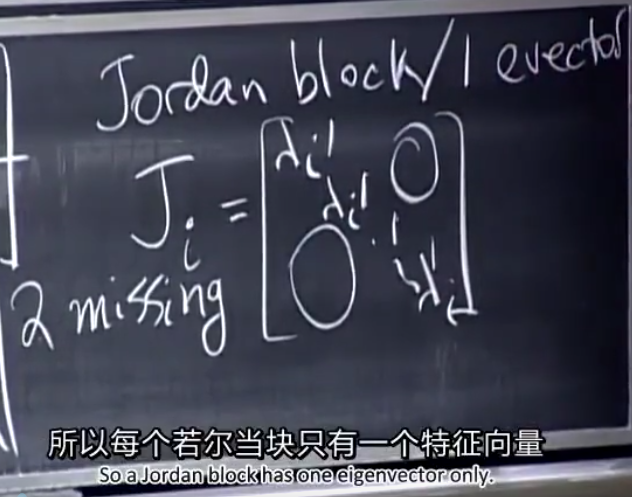 Jordan block/1 evector
J_i = [ λ_i 1 O
λ_i 1
. 1
O λ_i ]
2 missing
所以每个若尔当块只有一个特征向量
So a Jordan block has one eigenvector only.